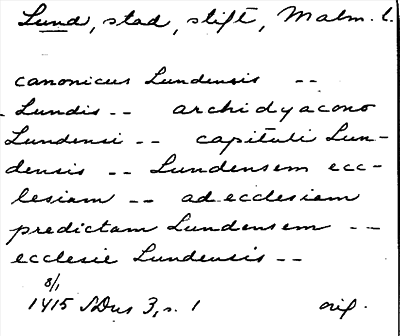 Lund, stad, stift, Malm. l.
canonicus Lundensis --
- Lundis -- archidyacono
Lundensi -- capituli Lun-
densis -- Lundensem ecc-
lesiam -- ad ecclesiam
predictam Lundensem --
ecclesie Lundensis --
8/1
1415 SDns 3, s. 1 orig.